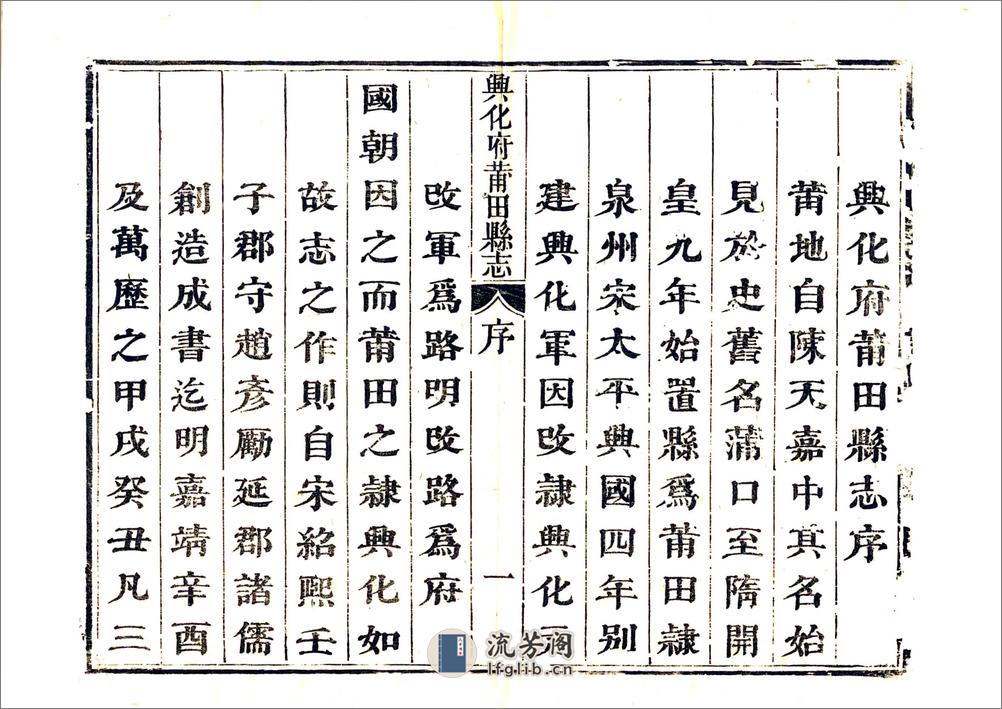 興化府莆田縣志序
莆地自陳天嘉中其名始
見於史舊名蒲口至隋開
皇九年始置縣爲莆田隷
泉州宋太平興國四年别
建興化軍因攺隷興化元
興化府莆田縣志 序 一
攺軍爲路明攺路爲府
國朝因之而莆田之隷興化如
故志之作則自宋紹熙壬
子郡守趙彥勵延郡諸儒
創造成書迄明嘉靖辛酉
及萬歷之甲戌癸丑凡三
流芳阁
lfglib.cn